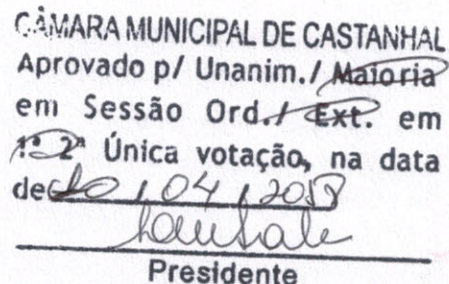 CÂMARA MUNICIPAL DE CASTANHAL
Aprovado p/ Unanim./ Maioria
em Sessão Ord./ Ext. em
1ª 2ª Única votação, na data
de 10 / 04 / 2018
Presidente